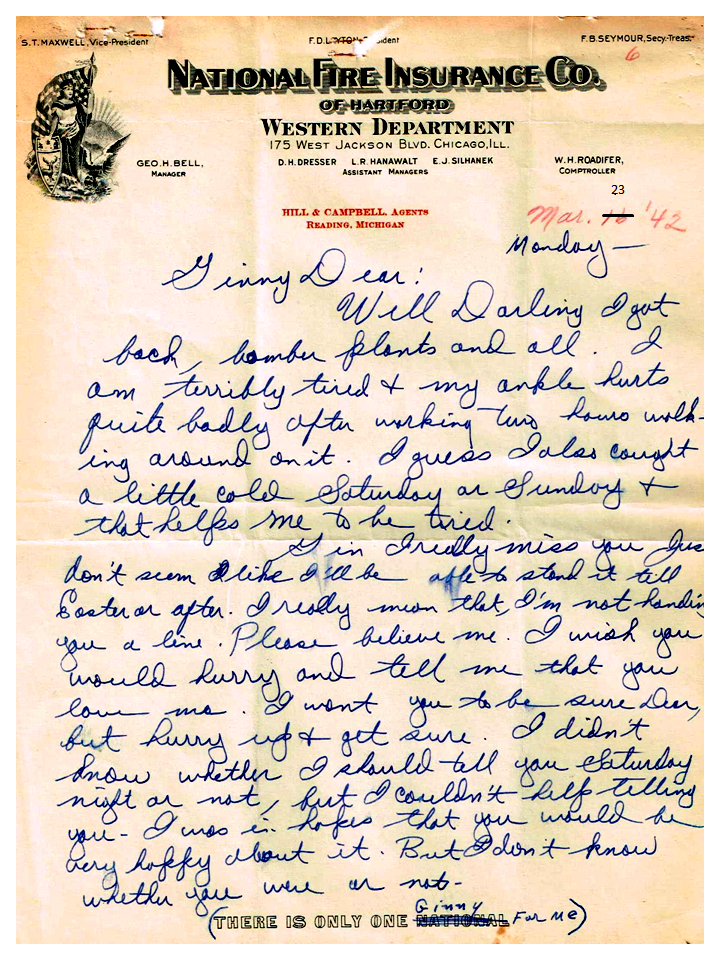 S.T. MAXWELL, Vice-President F.D. LAYTON, President F.B. SEYMOUR, Secy.-Treas.
6
NATIONAL FIRE INSURANCE CO.
OF HARTFORD
WESTERN DEPARTMENT
175 WEST JACKSON BLVD. CHICAGO, ILL.
GEO. H. BELL, D.H. DRESSER L.R. HANAWALT E.J. SILHANEK W.H. ROADIFER,
MANAGER ASSISTANT MANAGERS COMPTROLLER
23
HILL & CAMPBELL, AGENTS Mar. 16 '42
READING, MICHIGAN
Monday —
Ginny Dear:
Well Darling I got
back, bomber plants and all. I
am terribly tired & my ankle hurts
quite badly after working two hours walk-
ing around on it. I guess I also caught
a little cold Saturday or Sunday &
that helps me to be tired.
Gin I really miss you Jus
don't seem like I'll be able to stand it till
Easter or after. I really mean that, I'm not handin
you a line. Please believe me. I wish you
would hurry and tell me that you
love me. I want you to be sure Dear,
but hurry up & get sure. I didn't
know whether I should tell you Saturday
night or not, but I couldn't help telling
you - I was in hopes that you would be
very happy about it. But I don't know
whether you were or not -
Ginny
(THERE IS ONLY ONE NATIONAL For Me)